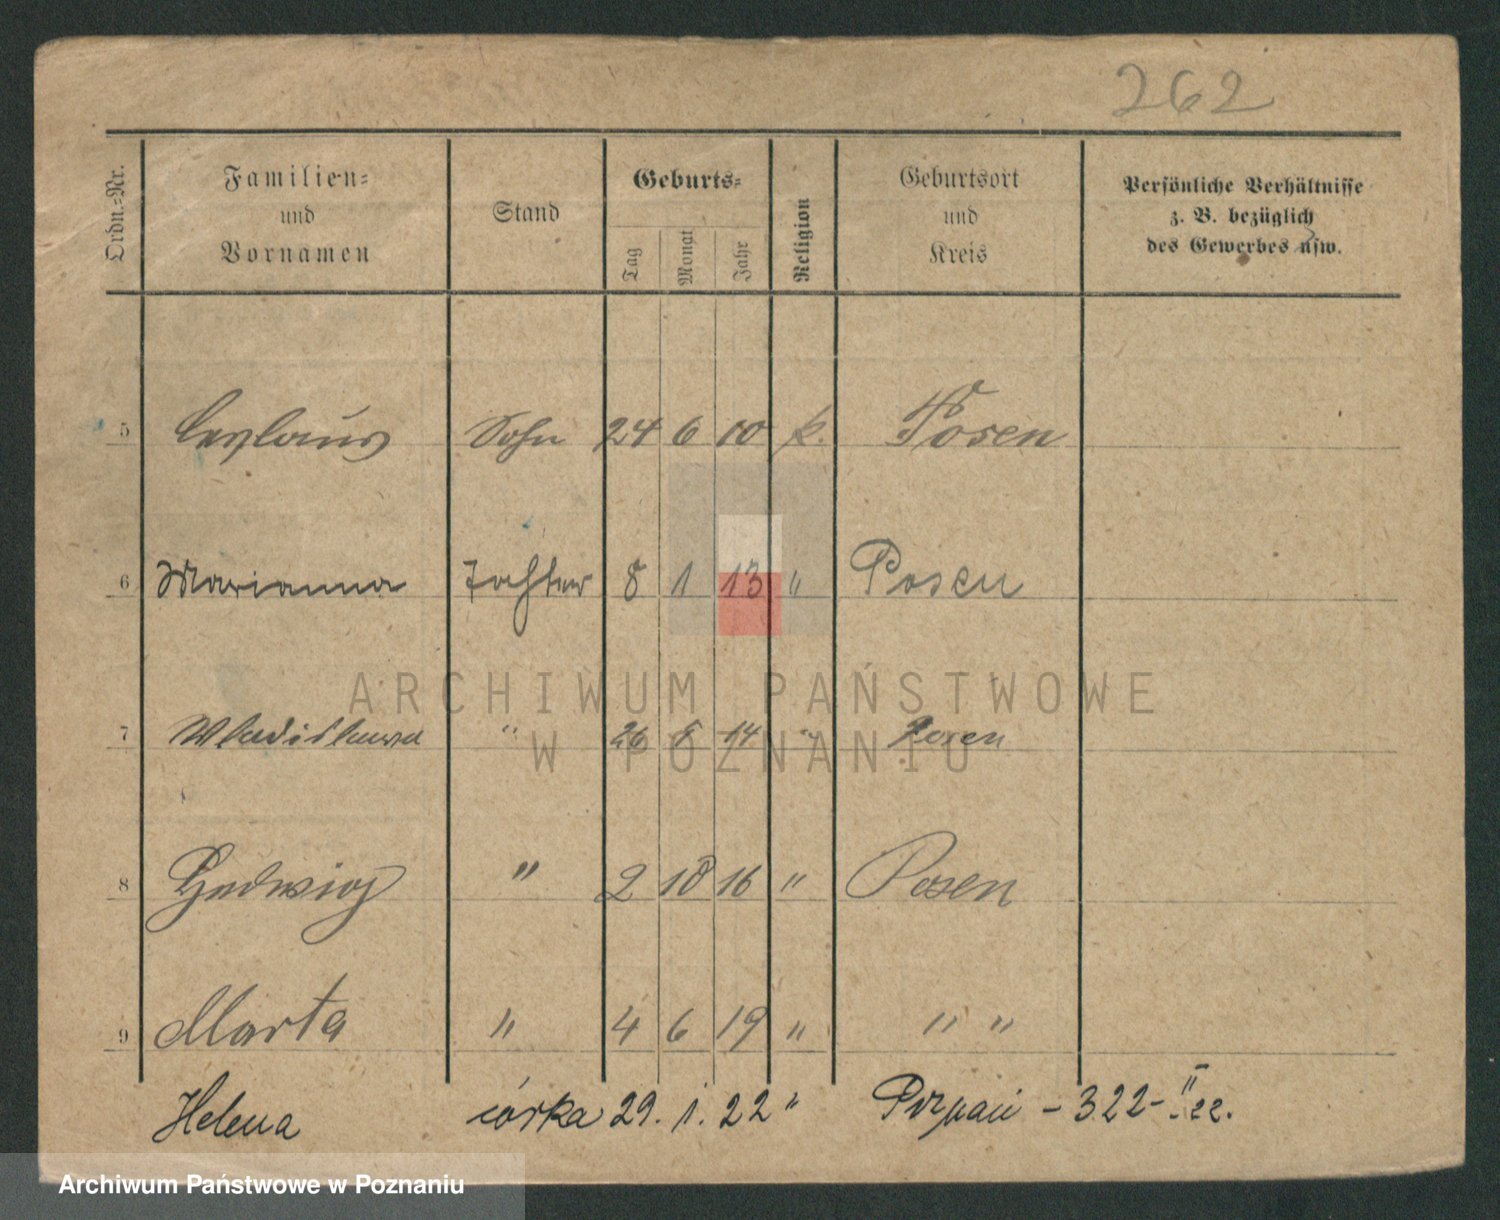 262
Ordn.-Nr.
Familien-
und
Vornamen
Stand
Geburts-
Tag
Monat
Jahr
Religion
Geburtsort
und
Kreis
Persönliche Verhältnisse
z. B. bezüglich
des Gewerbes usw.
5 Ceslaus Sohn 24 6 10 k. Posen
6 Marianna Tochter 8 1 13 " Posen
ARCHIWUM PAŃSTWOWE
7 Wladislawa " 26 8 14 " Posen
W POZNANIU
8 Hedwig " 2 10 16 " Posen
9 Marta " 4 6 19 " " "
Helena córka 29. 1. 22 " Poznań - 322- II
Archiwum Państwowe w Poznaniu